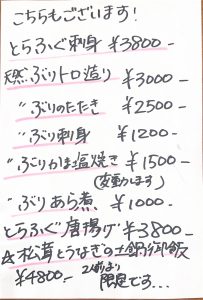 こちらもございます!
とらふぐ刺身 ¥3800-
天然ぶりトロ造り ¥3000-
〃 ぶりのたたき ¥2500-
〃 ぶり刺身 ¥1200-
〃 ぶりかま塩焼き ¥1500-
(変動します)
〃 ぶりあら煮 ¥1000-
とらふぐ唐揚げ ¥3800-
☆松茸とうなぎの土鍋御飯
¥4800- 2合より
限定です...